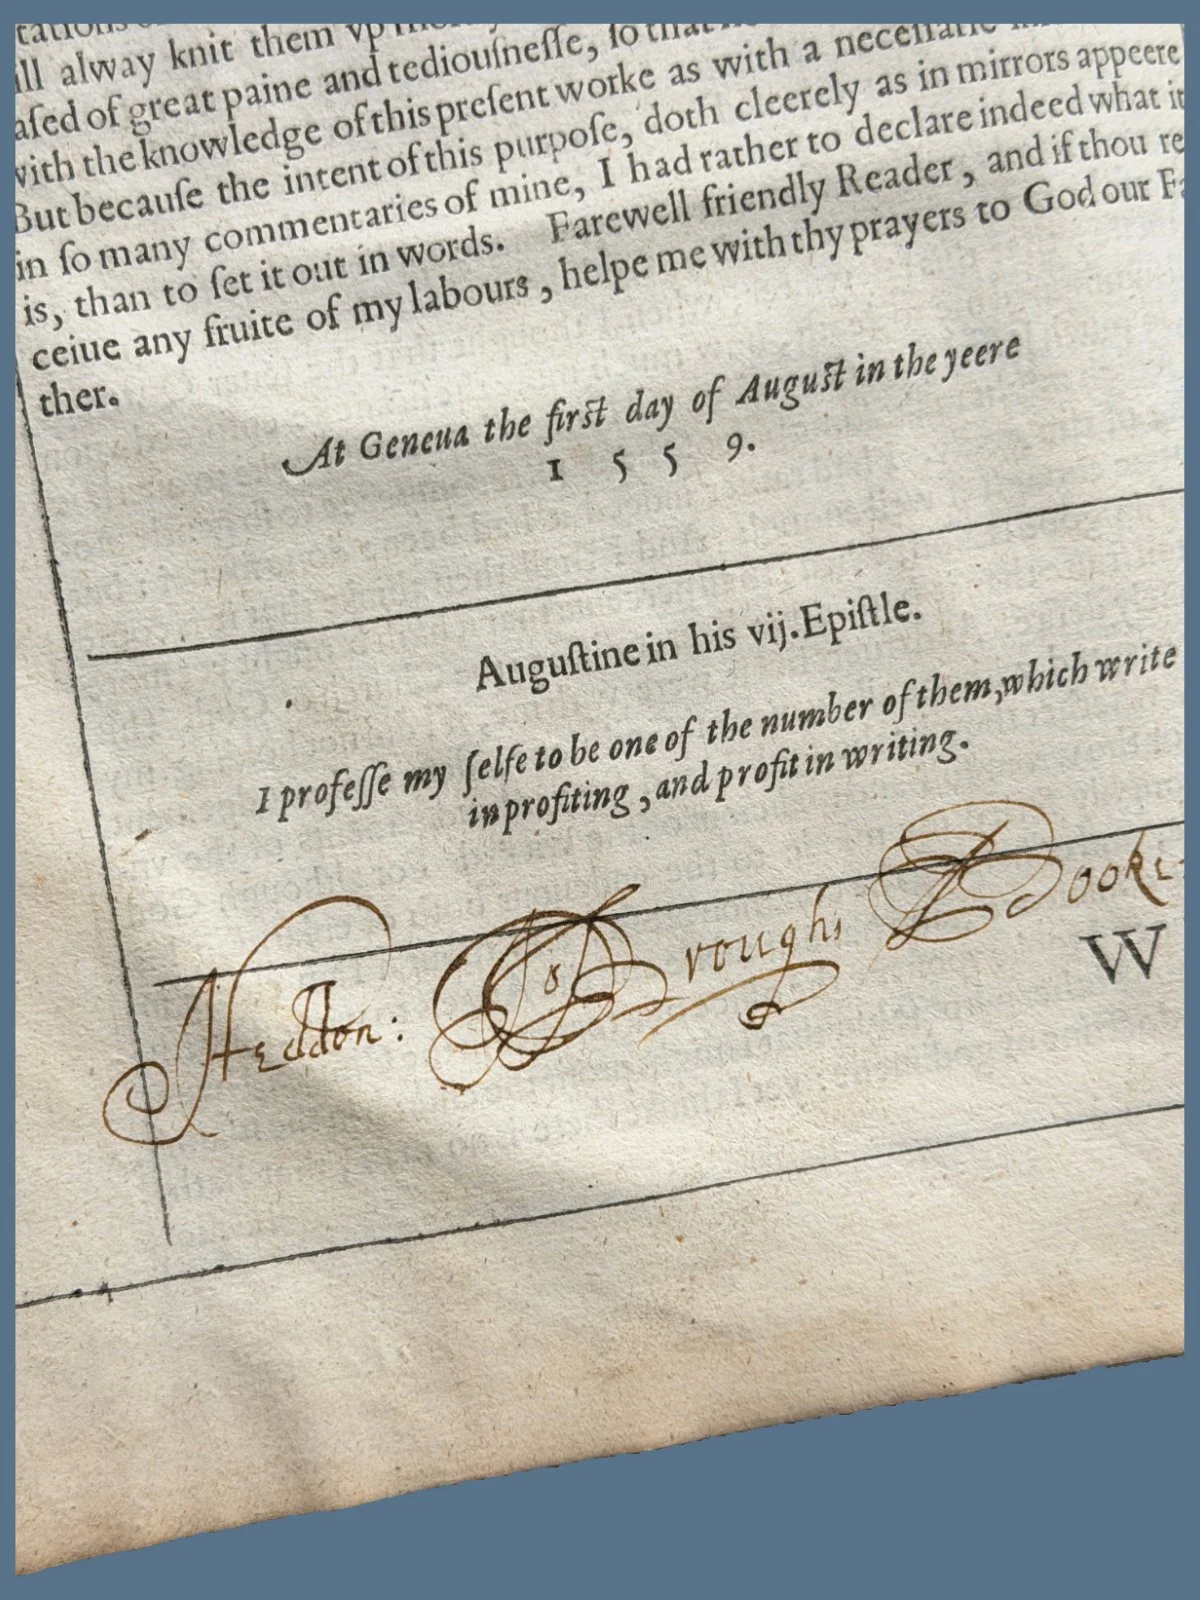 tations
ill alway knit them vp
aſed of great paine and tediouſneſſe, ſo that
with the knowledge of this preſent worke as with a neceſſarie
But becauſe the intent of this purpoſe, doth cleerely as in mirrors appeere
in ſo many commentaries of mine, I had rather to declare indeed what it
is, than to ſet it out in words. Farewell friendly Reader, and if thou re
ceiue any fruite of my labours, helpe me with thy prayers to God our Fa
ther.
At Geneua the firſt day of Auguſt in the yeere
1 5 5 9.
Auguſtine in his vij. Epiſtle.
I profeſſe my ſelfe to be one of the number of them, which write
in profiting, and profit in writing.
Heddon: Broughs Booke
W